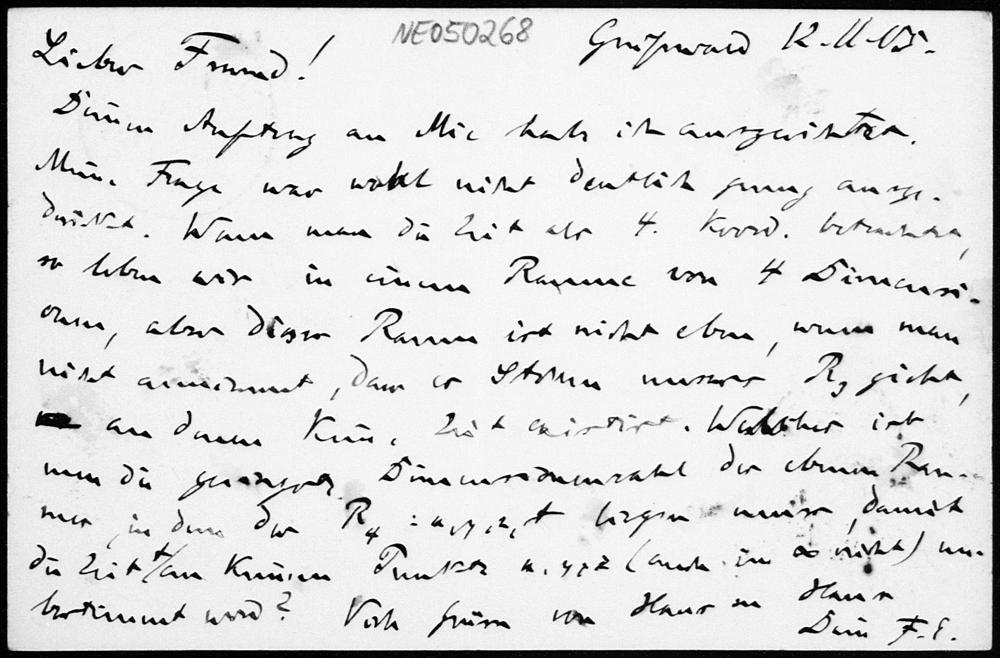 NE050268
Greifswald 12-II-05.
Lieber Freund!
Deinen Auftrag an Mie habe ich ausgerichtet.
Meine Frage war wohl nicht deutlich genug ausge-
drückt. Wenn man die Zeit als 4. Koord. betrachtet,
so leben wir in einem Raume von 4 Dimensi-
onen, aber dieser Raum ist nicht eben, wenn man
nicht annimmt, dass es Stellen unseres R3 giebt,
an denen keine Zeit existirt. Welches ist
nun die geringste Dimensionenzahl des ebenen Rau-
mes, in dem der R4 = x, y, z, t liegen muss, damit
die Zeit t an keinem Punkte x, y, z (auch im ∞ nicht) un-
bestimmt wird? Viele Grüsse von Haus zu Haus
Dein F. E.